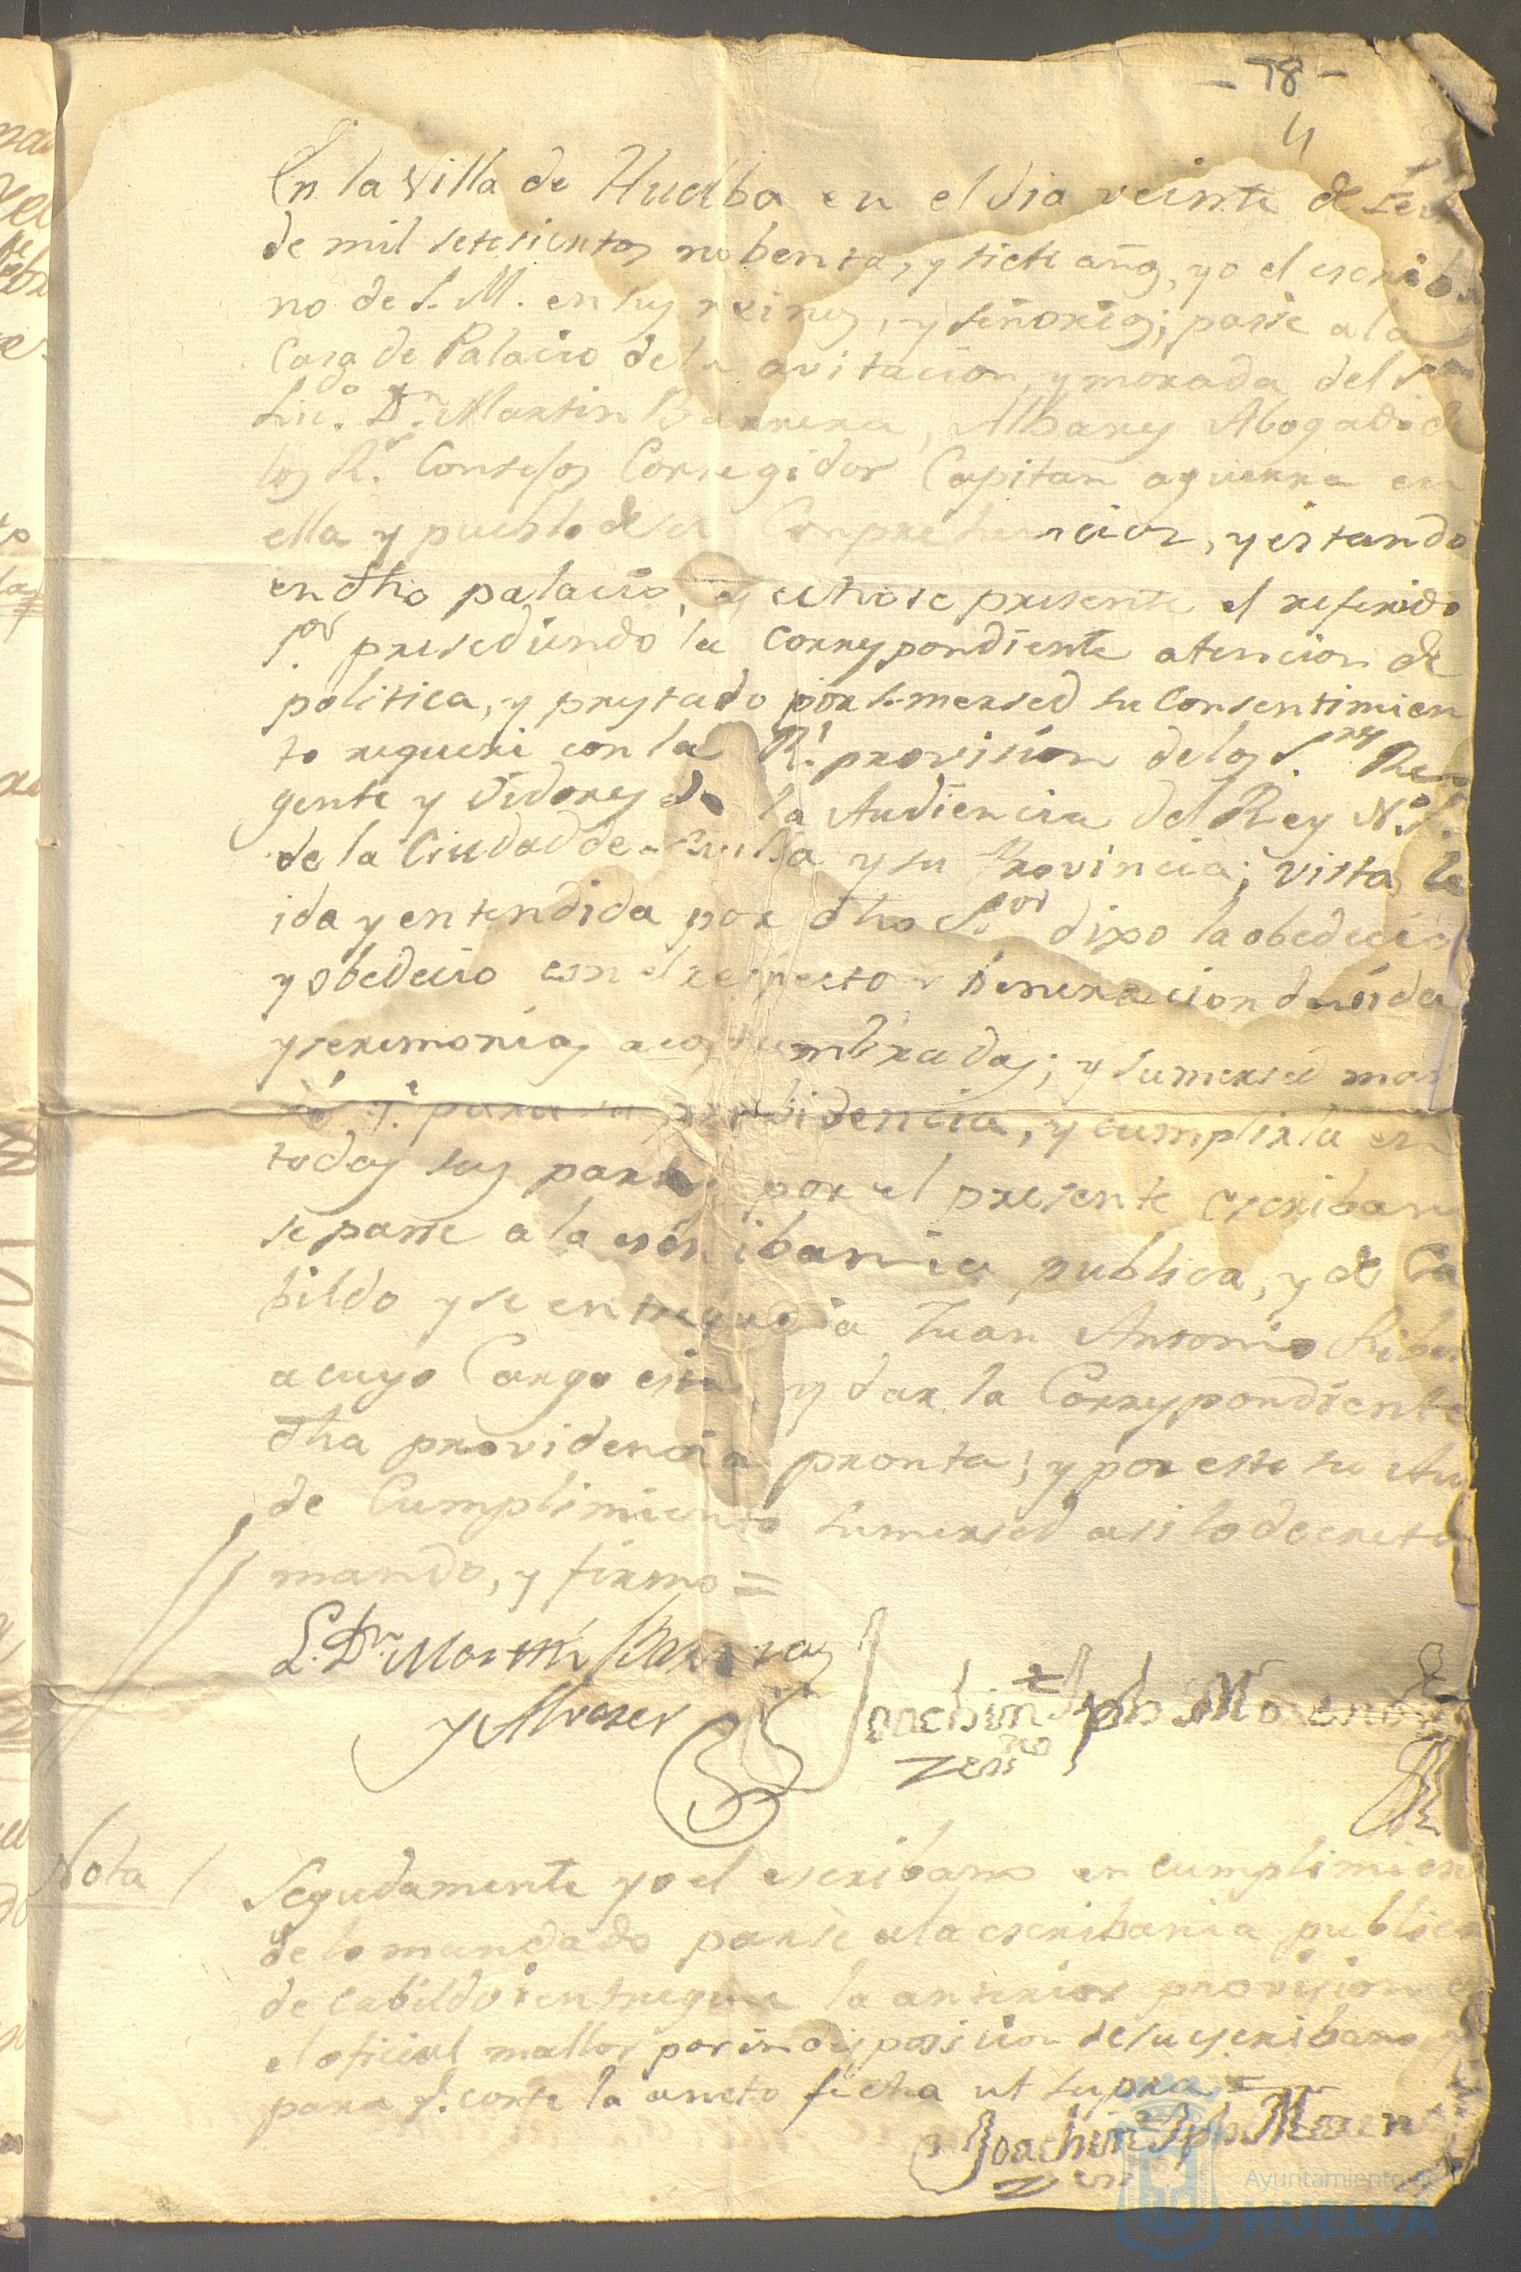 - 78 -
4
En la Villa de Huelba en el dia veinte de Feb
de mil setesientos nobenta, y siete añs, yo el escriba
no de S. M. en sus reinos, y señorios; passe a la
Casa de Palacio de la avitacion, y morada del Sor
Licdo. Dn. Martin Barrera, Albarez Abogado de
los Rs. Consejos Corregidor Capitan aguerra en
ella y pueblo de su Conprehencion, y estando
en dho palacio, y echose presente el referido
Sor. presediendo la correspondiente atencion de
politica, y prestado por su mersed su Consentimien
to requeri con la Rl. provision de los Sres Re
gente y Oidores de la Audiencia del Rey N. S.
de la Ciudad de Sevilla y su Provincia; vista, le
ida y entendida por dho Sor. dixo la obedecia
y obedecio con el respecto y beneracion devida
y seremonias acostumbradas; y su mersed man
dó q.e para su probidencia, y cumplirla en
todas sus partes por el presente escriban
se passe a la escribania publica, y de Ca
bildo y se entregue a Juan Antonio Riber
a cuyo Cargo esta, y dar la Correspondiente
dha providencia pronta; y por este su Au
de Cumplimiento su mersed asi lo decreto
mando, y firmo =
L. Dn. Martin Barrera
y Alvarez
Joachin Jph Moreno
Nota /
Seguidamente yo el escribano en cumplimien
de lo mandado passe a la escribania publica
de cabildo i entregue la anterior provision
el oficial mallor por indisposicion de su escribano
para q. corste la aneto fecha ut supra =
Joachin Jph Moren
Ayuntamiento de
HUELVA